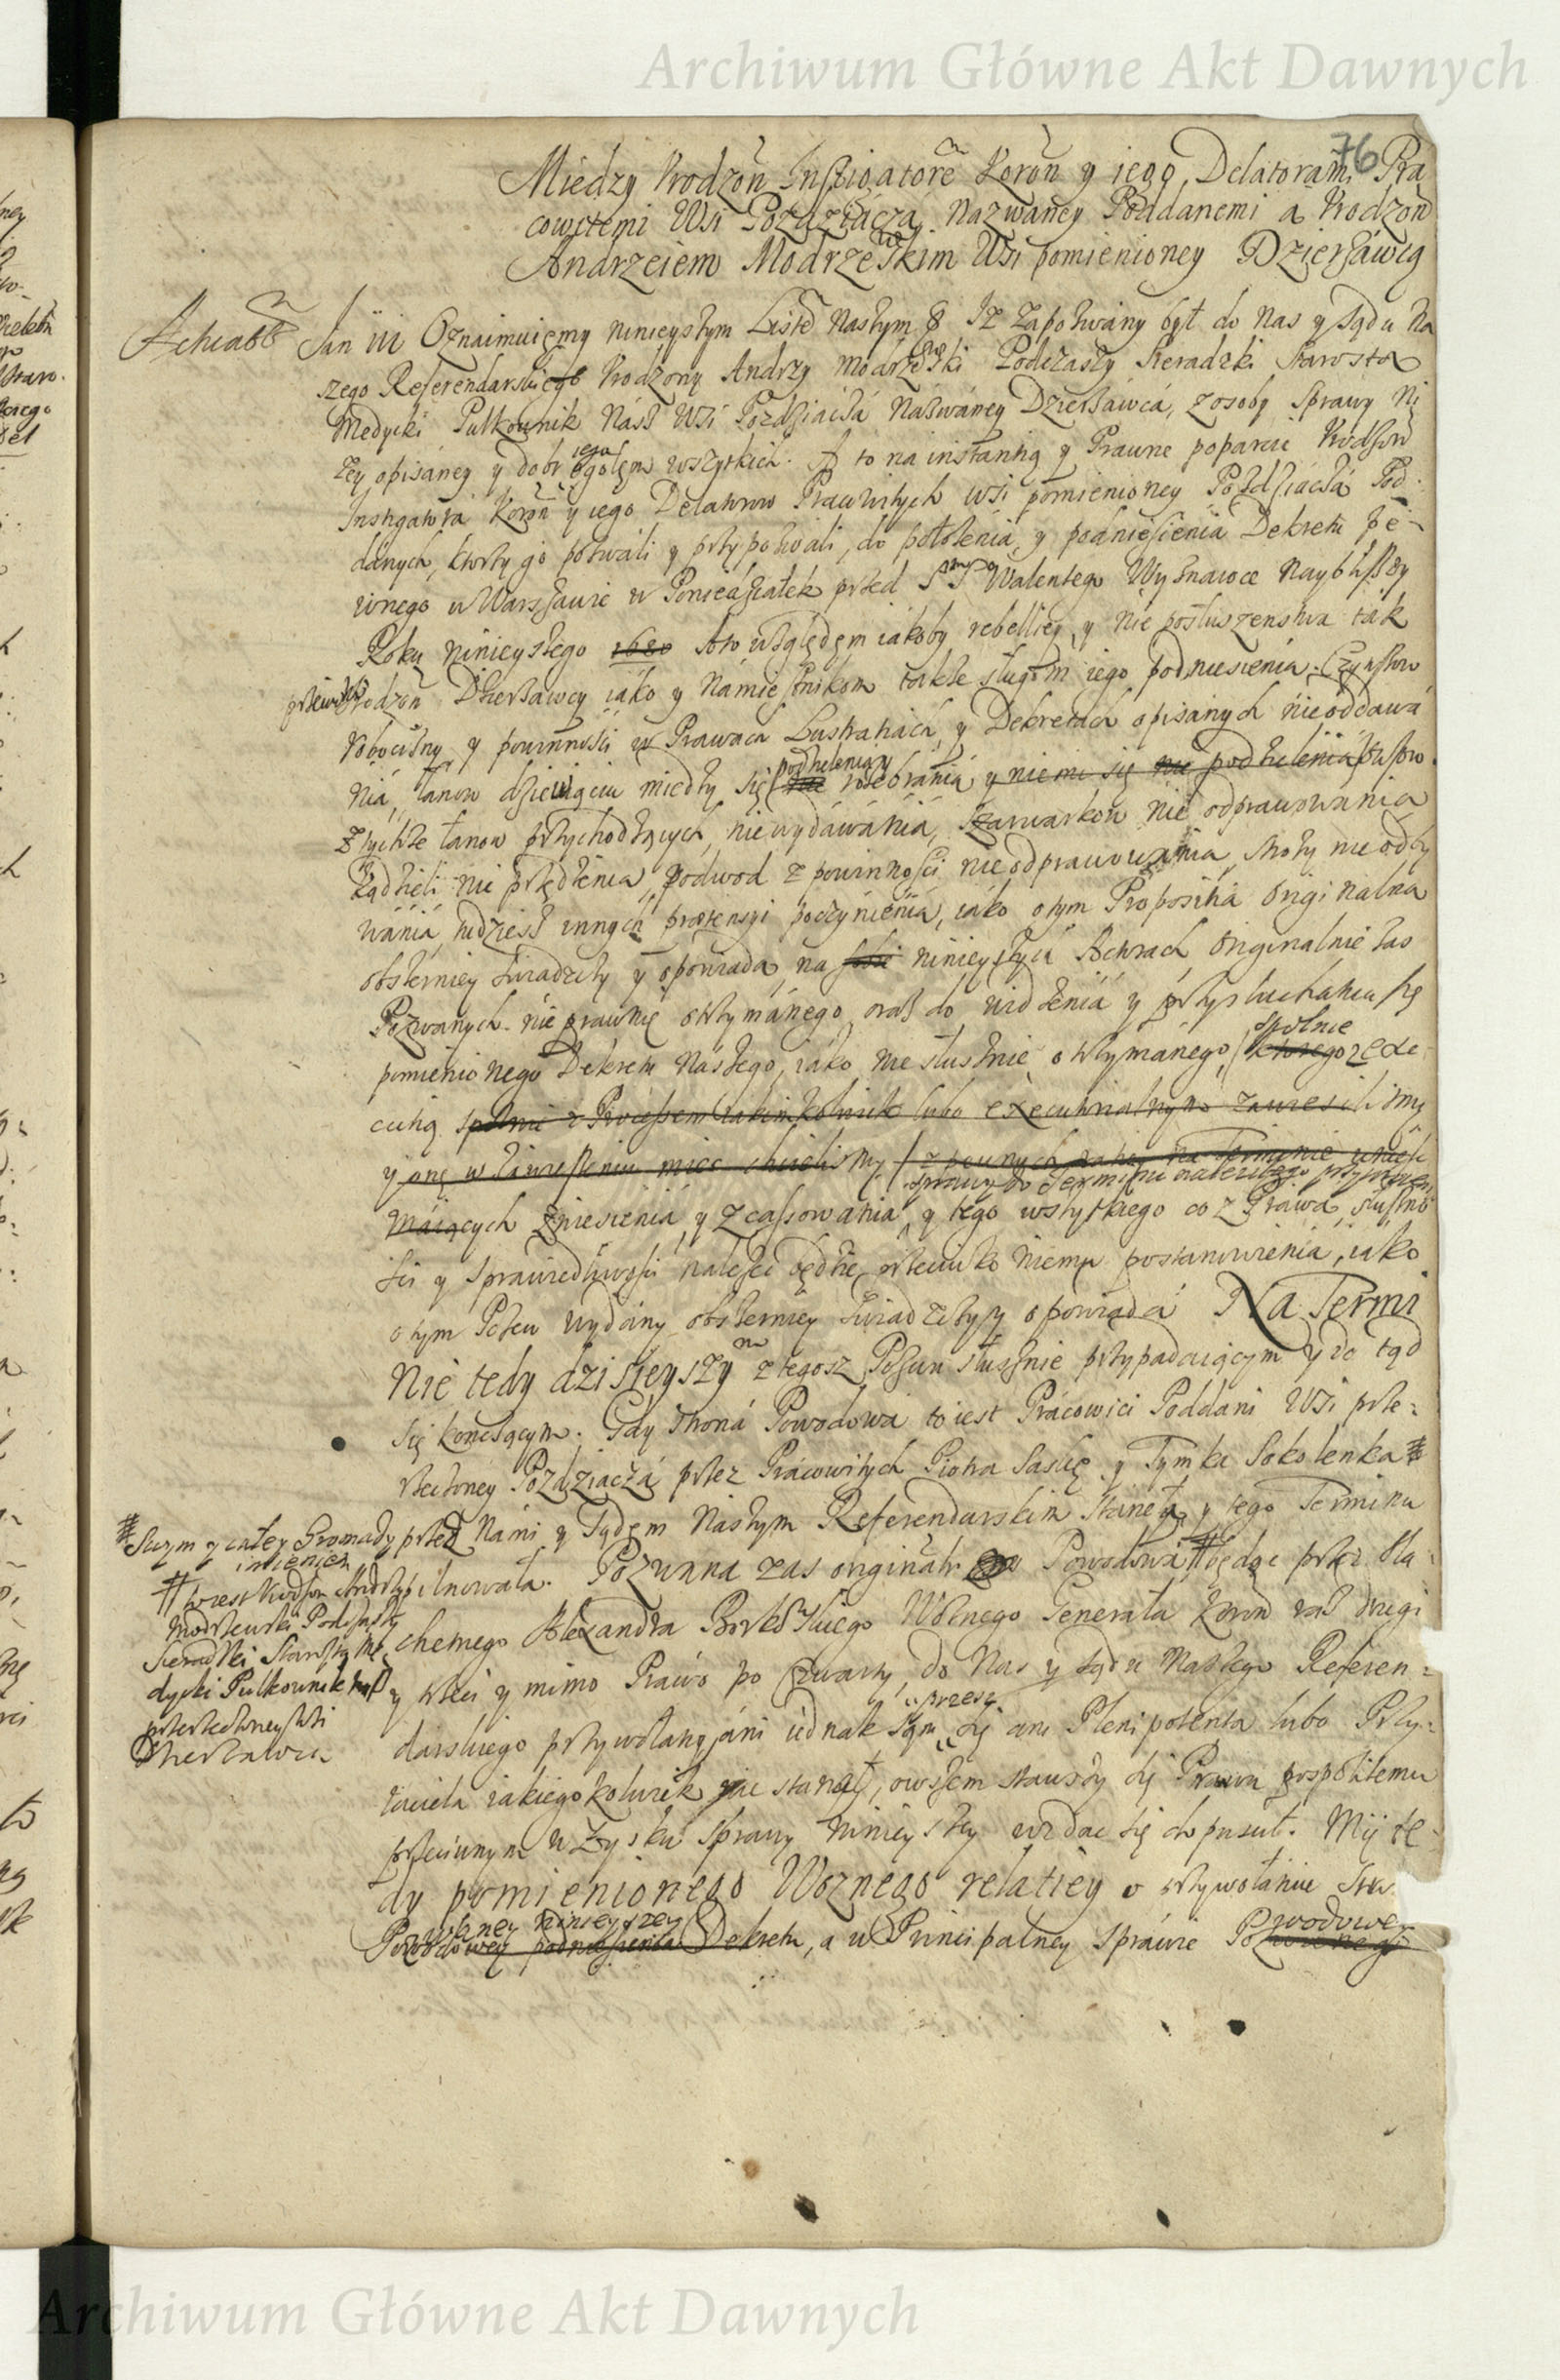 Archiwum Główne Akt Dawnych
76
Między Urodzon Instigatore Koron y iego Delatorami Pra
cowitemi Wsi Pozdziacza Nazwaney Poddanemi a Urodzon
Andrzeiem Modrzewskim Wsi pomienioney Dzierzawcą
Jan iii Oznaimuięmy ninieyszym Liste Naszym Iz zapozwany był do Nas y Sądu Na
szego Referendarskiego Urodzony Andrzy Modrzewski Podczaszy Sieradzki Starosta
Medycki Pułkownik Nasz Wsi Pozdziacza Nazwáney Dzierzáwcá, z osoby Sprawy Ni
zey opisáney y dobr iego ogołęm wszytkich. A to na instantią y Prawne poparcie Urodzon
Instigatora Koron y iego Delatorow Pracowitych wsi pomienioney Pozdziacza Pod
danych, ktorzy go pozwali y przypozwali, do położenia, y podniesienia Dekretu pe
wnego w Warszawie w Poniedziałek przed S Walentego Wyznawce Naybliszy
Roku ninieyszego 1680 względęm iakoby rebelliey y nie posłuszenstwa tak
przeciwko
Urodzon Dzierzawcy iáko y Námiestnikom takze sługom iego podniesienia, Czynszow
robocizny y powinnosci w Prawach Lustratiach, y Dekretach opisanych nieoddawa
nia, łanow dziewiąciu między się podzielenia y rozebránia y niemi się nie podzielenia
z tychze łanow przychodzących, nie wydáwánia, szarwarkow nie odprawowania
kądzieli nie przędzenia, podwod z powinności nie odprawowania, strozy nie odby
wániá, tudziesz innych prætensyi poczynienia, iáko o tym Propositia Originalna
obszerniey swiadczy y opowiada, na ninieyszych Actach Originalnie zas
Pozwanych nie prawnie otrzymánego, oraz do widzenia y przysłuchania się
pomienionego Dekretu Nászego, iáko nie słusznie otrzymánego, spolnie z Exe
cutią spolnie z Processem iakimkolwiek lubo executialnym zawiesilismy
y onę w zawieszeniu miec chcielismy z pewnych racyi na Terminie
sprawy do Terminu nalezitego
máiących zniesienia, y zcassowania, y tego wszytkiego co z Prawá, słuszno
sci y sprawiedliwosci nalezeć będzie przeciwko niemu postanowienia, iako
o tym Pozew wydány obszerniey swiadczy y opowiada Na Termi
nie tedy dzisieyszym z tegosz Pozwu słusznie przypadaiącym y do tąd
się konczącym. Gdy Strona Powodowa to iest Prácowici Poddani Wsi prze
rzeczoney Pozdziaczá przez Prácowitych Piotra Sasuię y Tymka Sokolenka
przed Nami y Sądem Naszym Referendarskim stáneła y tego Terminu
pilnowała. Pozwana zas originali Powodowa będąc przez Szla
chetnego Alexandra Borkowskiego Woznego Generała Koron raz drugi
y trzeci y mimo Prawo po czwarty, do Nas y Sądu Naszego Referen
darskiego przywołany, áni iednak sam przez się ani Plenipotenta lubo Przy
iaciela iakiegokolwiek nie stanął, owszem stawszy się Prawu pospolitemu
przeciwnym w Zysku sprawy ninieyszey wzdac się dopuscił. My te
dy pomienionego Woznego relatiey o przywołaniu
Pozwaney ninieyszey
Powodowey podniesienia Dekretu, a w Principalney Spráwie Powodowey
Suzym y całey Gromady
imieniem
to iest Urodzon Andrzy
Modrzewski Podczaszy
Sieradzki Starosta Me
dycki Pułkownik Nasz
przerzeczoney Wsi
Dzierzawca
Archiwum Główne Akt Dawnych